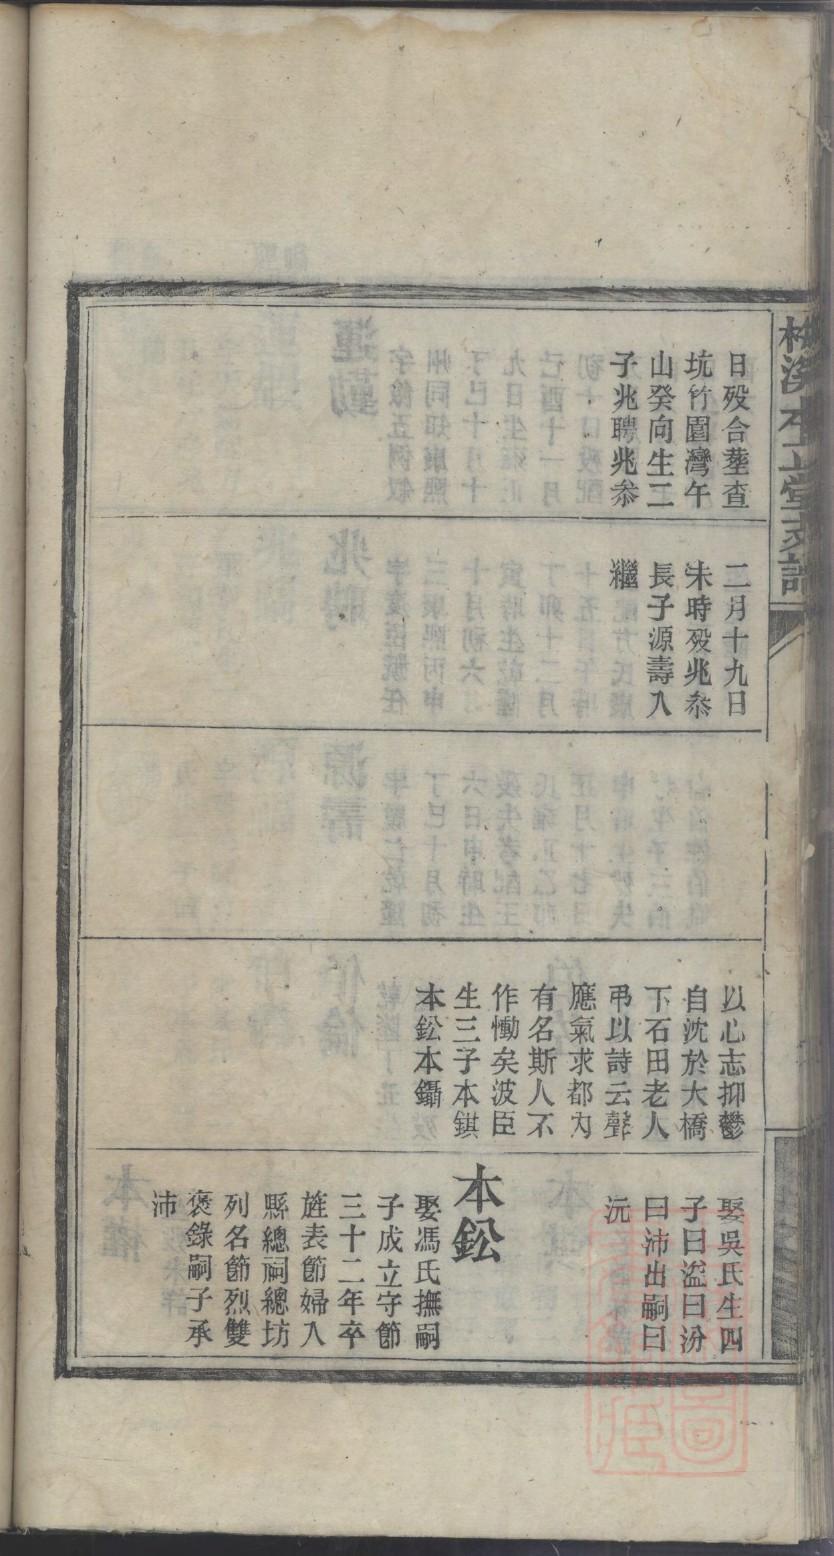 日殁合塟查
坑竹園灣午
山癸向生二
子兆聘兆叅
二月十九日
未時殁兆叅
長子源壽入
繼
以心志抑鬱
自沈於大橋
下石田老人
弔以詩云聲
應氣求都為
有名斯人不
作慟矣波臣
生三子本錤
本鈆本鑷
娶吳氏生四
子曰溢曰汾
曰沛出嗣曰
沅
本鈆
娶馮氏撫嗣
子成立守節
三十二年卒
旌表節婦入
縣總祠總坊
列名節烈雙
褒錄嗣子承
沛